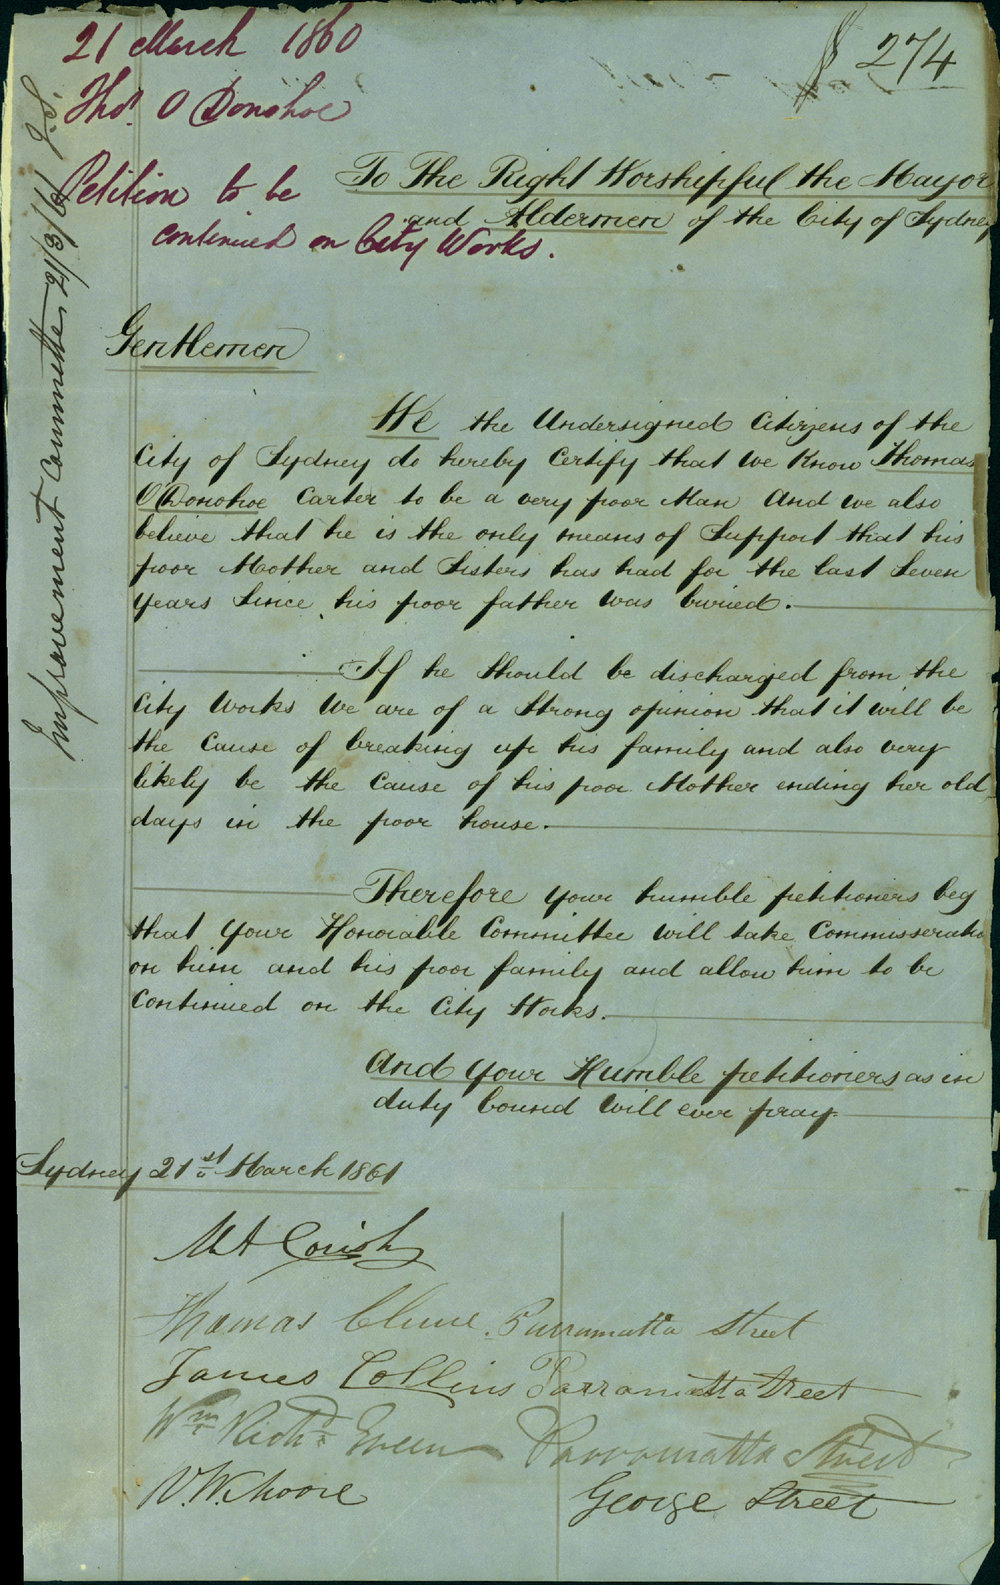 21 March 1860
Thos. O Donohoe
Petition to be
continued on City Works.
274
Improvement Committee 21/3/61 J.S.
To The Right Worshipful the Mayor
and Aldermen of the City of Sydney
Gentlemen
We the Undersigned Citizens of the
City of Sydney do hereby Certify that we Know Thomas
O'Donohoe Carter to be a very poor Man And we also
believe that he is the only means of Support that his
poor Mother and Sisters has had for the last Seven
Years Since his poor father was buried.
If he Should be discharged from the
City Works We are of a Strong opinion that it will be
the Cause of breaking up his family and also very
likely be the Cause of his poor Mother ending her old
days in the poor house.
Therefore your humble petitioners beg
that your Honorable Committee will take Commisseratio
on him and his poor family and allow him to be
Continued on the City Works.
And your Humble petitioners as in
duty bound will ever pray.
Sydney 21st March 1861
Thomas Clune. Parramatta Street
James Collins Parramatta Street
Wm Richd Green Parramatta Street
Moore George Street